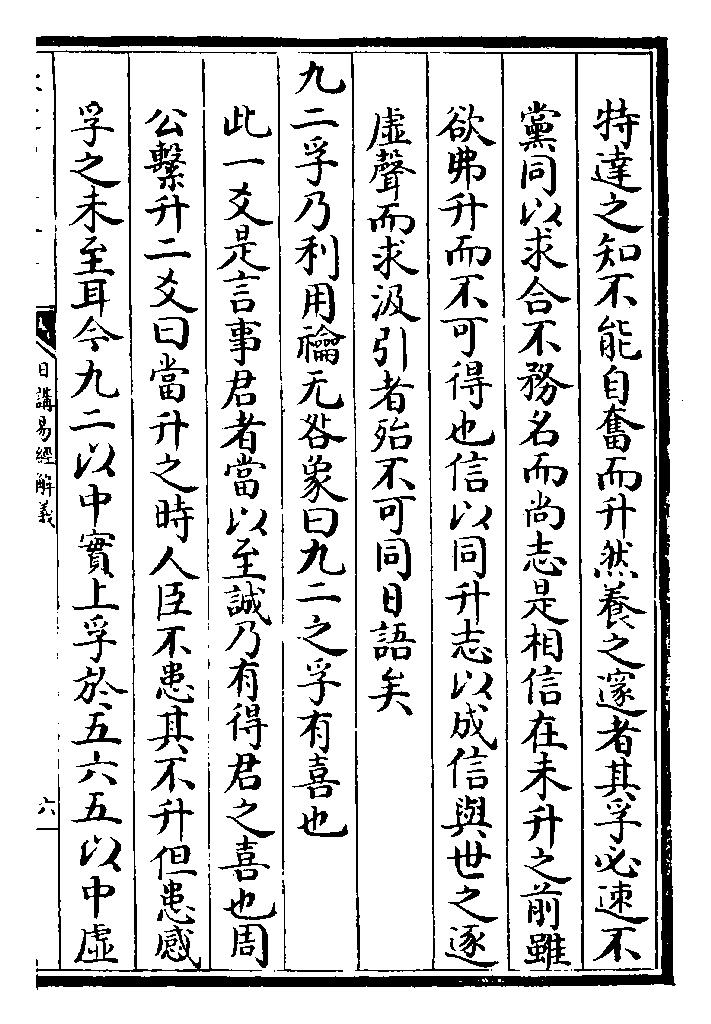 特達之知不能自奮而升然養之邃者其孚必速不
黨同以求合不務名而尚志是相信在未升之前雖
欲弗升而不可得也信以同升志以成信與世之逐
虛聲而求汲引者殆不可同日語矣
九二孚乃利用禴无咎象曰九二之孚有喜也
此一爻是言事君者當以至誠乃有得君之喜也周
公繫升二爻曰當升之時人臣不患其不升但患感
孚之未至耳今九二以中實上孚於五六五以中虛
日講易經解義
六